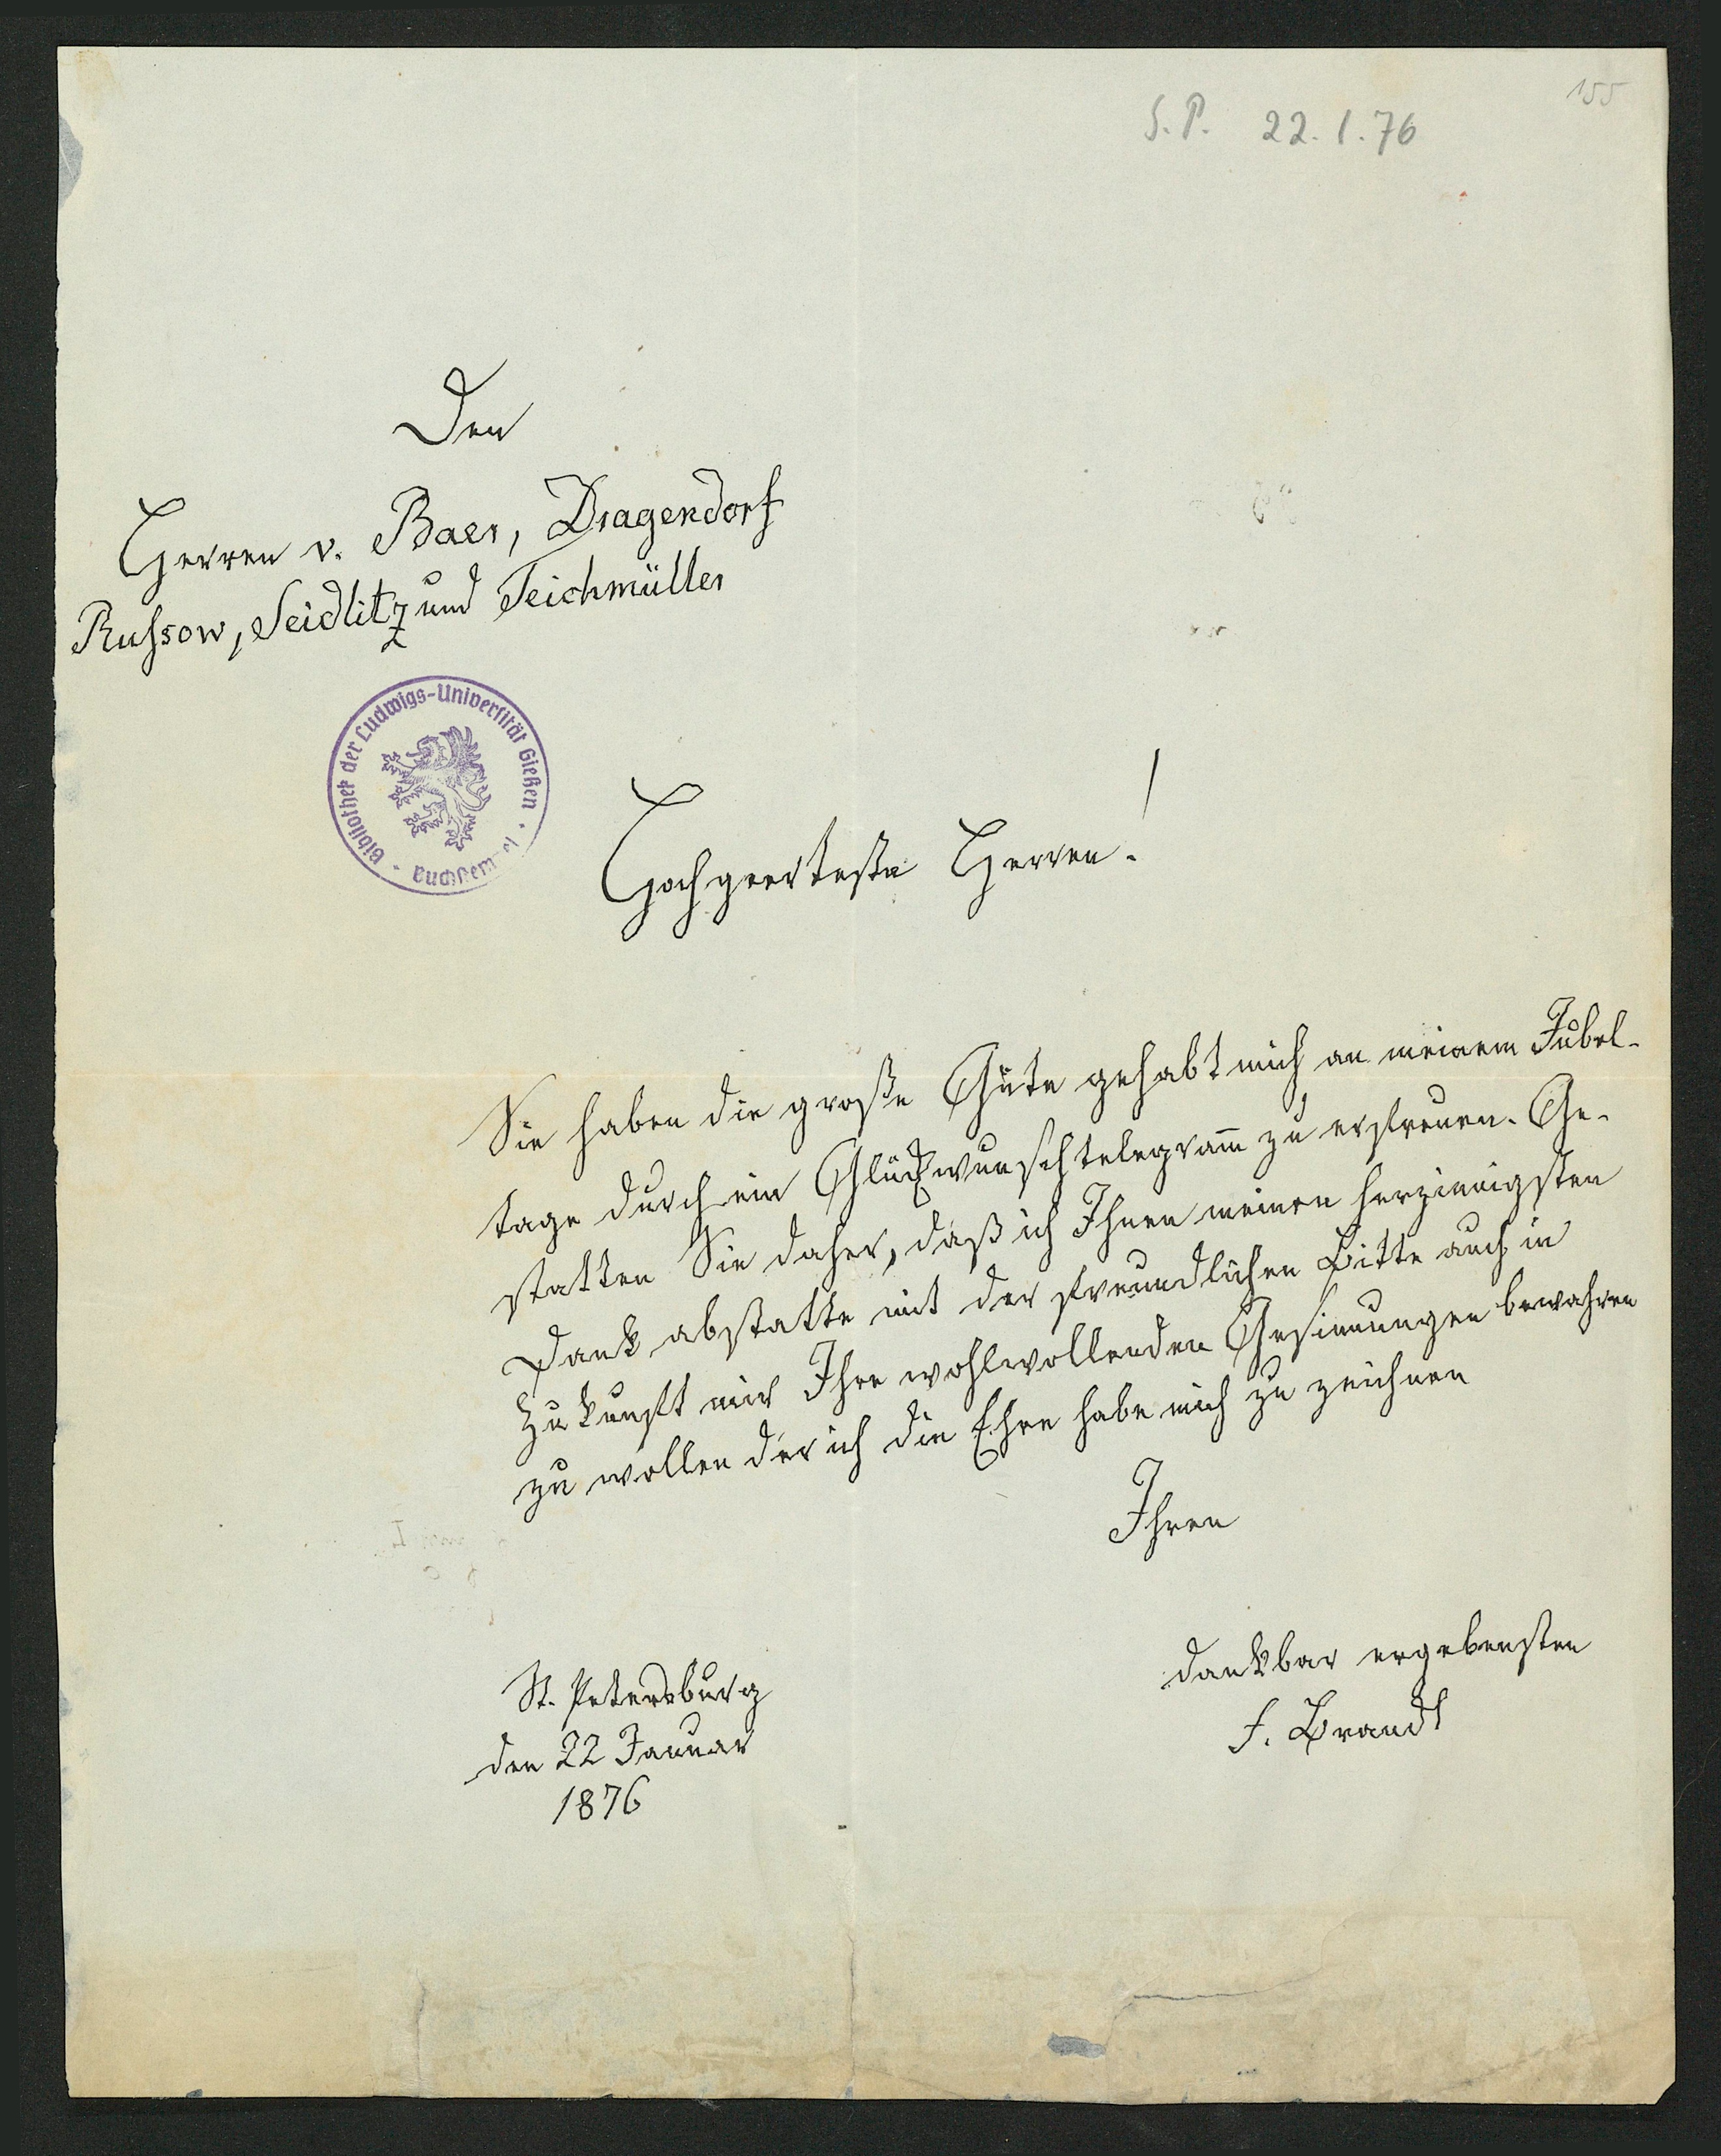 155
S. P. 22. 1. 76
Den
Herren v. Baer, Dragendorf
Russow, Seidlitz und Teichmüller
Bibliothek der Ludwigs-Universität Gießen
Hochgeerteste Herren!
Sie haben die große Güte gehabt mich an meinem Jubel-
tage durch ein Glückwunschtelegram̅ zu erfreuen. Ge-
statten Sie daher, daß ich Ihnen meinen herzinnigsten
Dank abstatte mit der freundlichen Bitte auch in
Zukunft mir Ihre wohlwollenden Gesinnungen bewahren
zu wollen der ich die Ehre habe mich zu zeichnen
Ihren
dankbar ergebensten
F. Brandt
St. Petersburg
den 22 Januar
1876